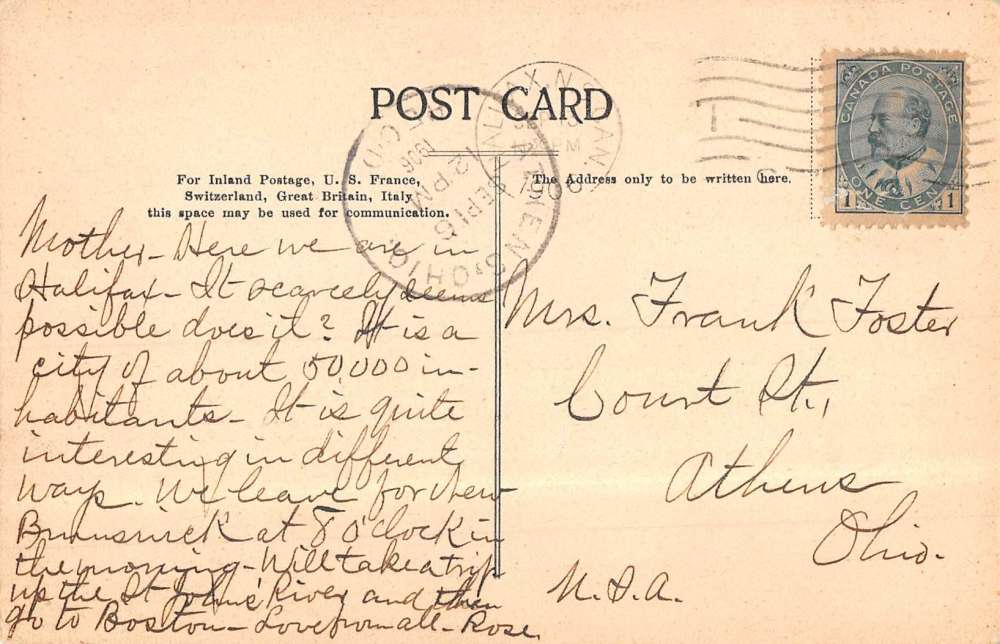 POST CARD
For Inland Postage, U. S. France,
Switzerland, Great Britain, Italy
this space may be used for communication.
The Address only to be written here.
CANADA POSTAGE
ONE CENT
1 1
HALIFAX, N.S.
CAN.
PM
ATHENS, OHIO
REC'D.
SEP 16
12 PM
1906
Mother - Here we are in
Halifax - It scarcely seems
possible does it? It is a
city of about 50,000 in-
habitants - It is quite
interesting in different
ways. We leave for New
Brunswick at 8 o'clock in
the morning - Will take a trip
up the St John's River and then
go to Boston - Love from all - Rose.
Mrs. Frank Foster
Court St.,
Athens
Ohio.
U.S.A.